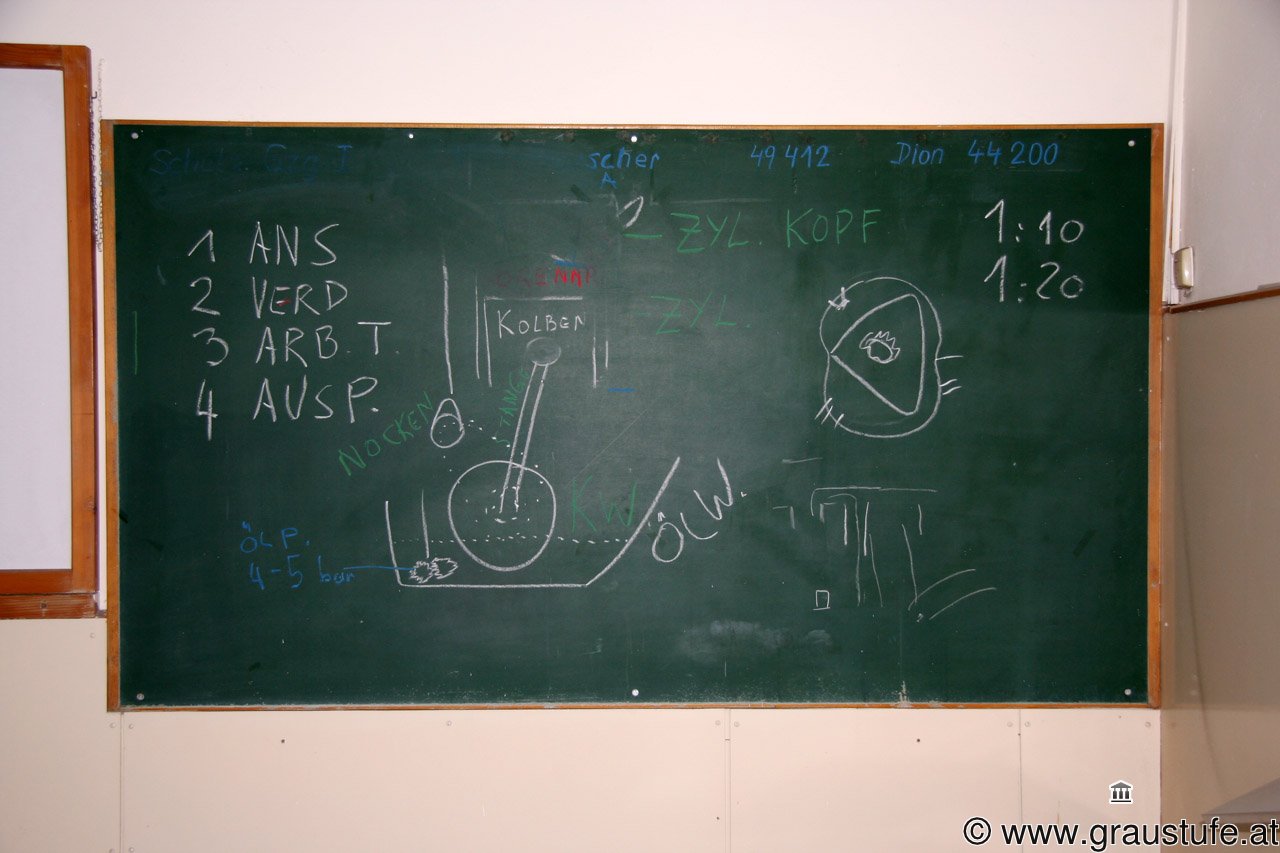 scher
A
49 412
Dion 44 200
1 ANS
2 VERD
3 ARB.T.
4 AUSP.
2 ZYL. KOPF
ZYL.
1:10
1:20
KOLBEN
STANGE
NOCKEN
KW
ÖLW.
ÖL P.
4-5 bar
© www.graustufe.at